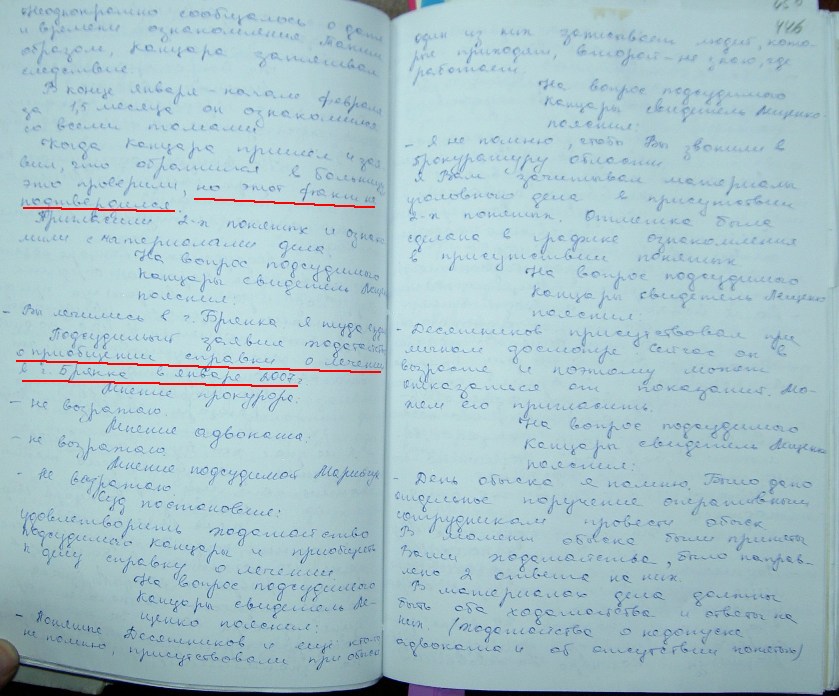 Неоднократно сообщалось о дате
и времени ознакомления. Таким
образом, Канцара затягивал
следствие.
В конце января - начале февраля
за 1,5 месяца он ознакомился
со всеми томами
Когда Канцара пришел и зая
вил, что обратился в больницу
это проверили, но этот факт не
подтвердился.
Пригласили 2-х понятых и ознако
мили с материалами дела.
На вопрос подсудимого
Канцары свидетель
пояснил:
- Вы лечились в г. Брянка я туда
Подсудимый заявил ходатайство
о приобщении справки о лечении
в г. Брянка в январе 2007г.
Мнение прокурора:
- не возражаю.
Мнение адвоката:
- не возражаю.
Мнение подсудимой
- Не возражаю
Суд постановил:
удовлетворить ходатайство
подсудимого Канцары и приобщить
к делу справку о лечении
На вопрос подсудимого
Канцары свидетель Ми-
щенко пояснил:
- Понятые Десятников и еще кто
не помню, присутствовали при обыске
446
один из них записывает людей, кото-
рые приходят, второй - не знаю, где
работает.
На вопрос подсудимого
Канцары свидетель Мищенко
пояснил:
- Я не помню, чтобы Вы звонили в
прокуратуру области
Я Вам зачитывал материалы
уголовного дела в присутствии
2-х понятых. Отметка была
сделана в графике ознакомления
в присутствии понятых
На вопрос подсудимого
Канцары свидетель Мищенко
пояснил:
- Десятников присутствовал при
личном досмотре сейчас он в
возрасте и поэтому может
отказаться от показаний. Мо-
жем его пригласить.
На вопрос подсудимого
Канцары свидетель Мищенко
пояснил:
- День обыска я помню. Было дано
отдельное поручение оперативным
сотрудникам провести обыск
В момент обыска были приняты
Ваши ходатайства, было направ-
лено 2 ответа на них.
В материалах дела должны
быть оба ходатайства и ответы на
них. (ходатайства о недопуске
адвоката и об отсутствии понятых)